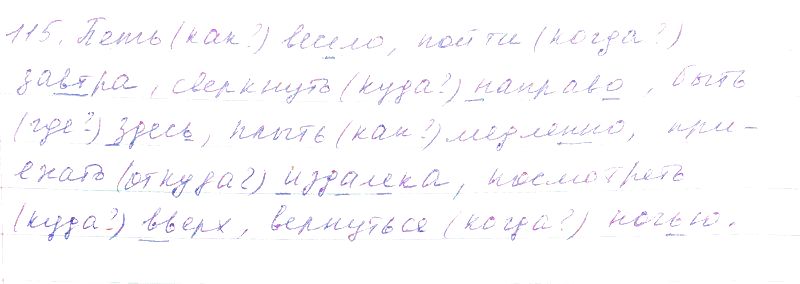 115. Петь (как?) весело, пойти (когда?)
завтра, сверкнуть (куда?) направо, быть
(где?) здесь, плыть (как?) медленно, при-
ехать (откуда?) издалека, посмотреть
(куда?) вверх, вернуться (когда?) ночью.